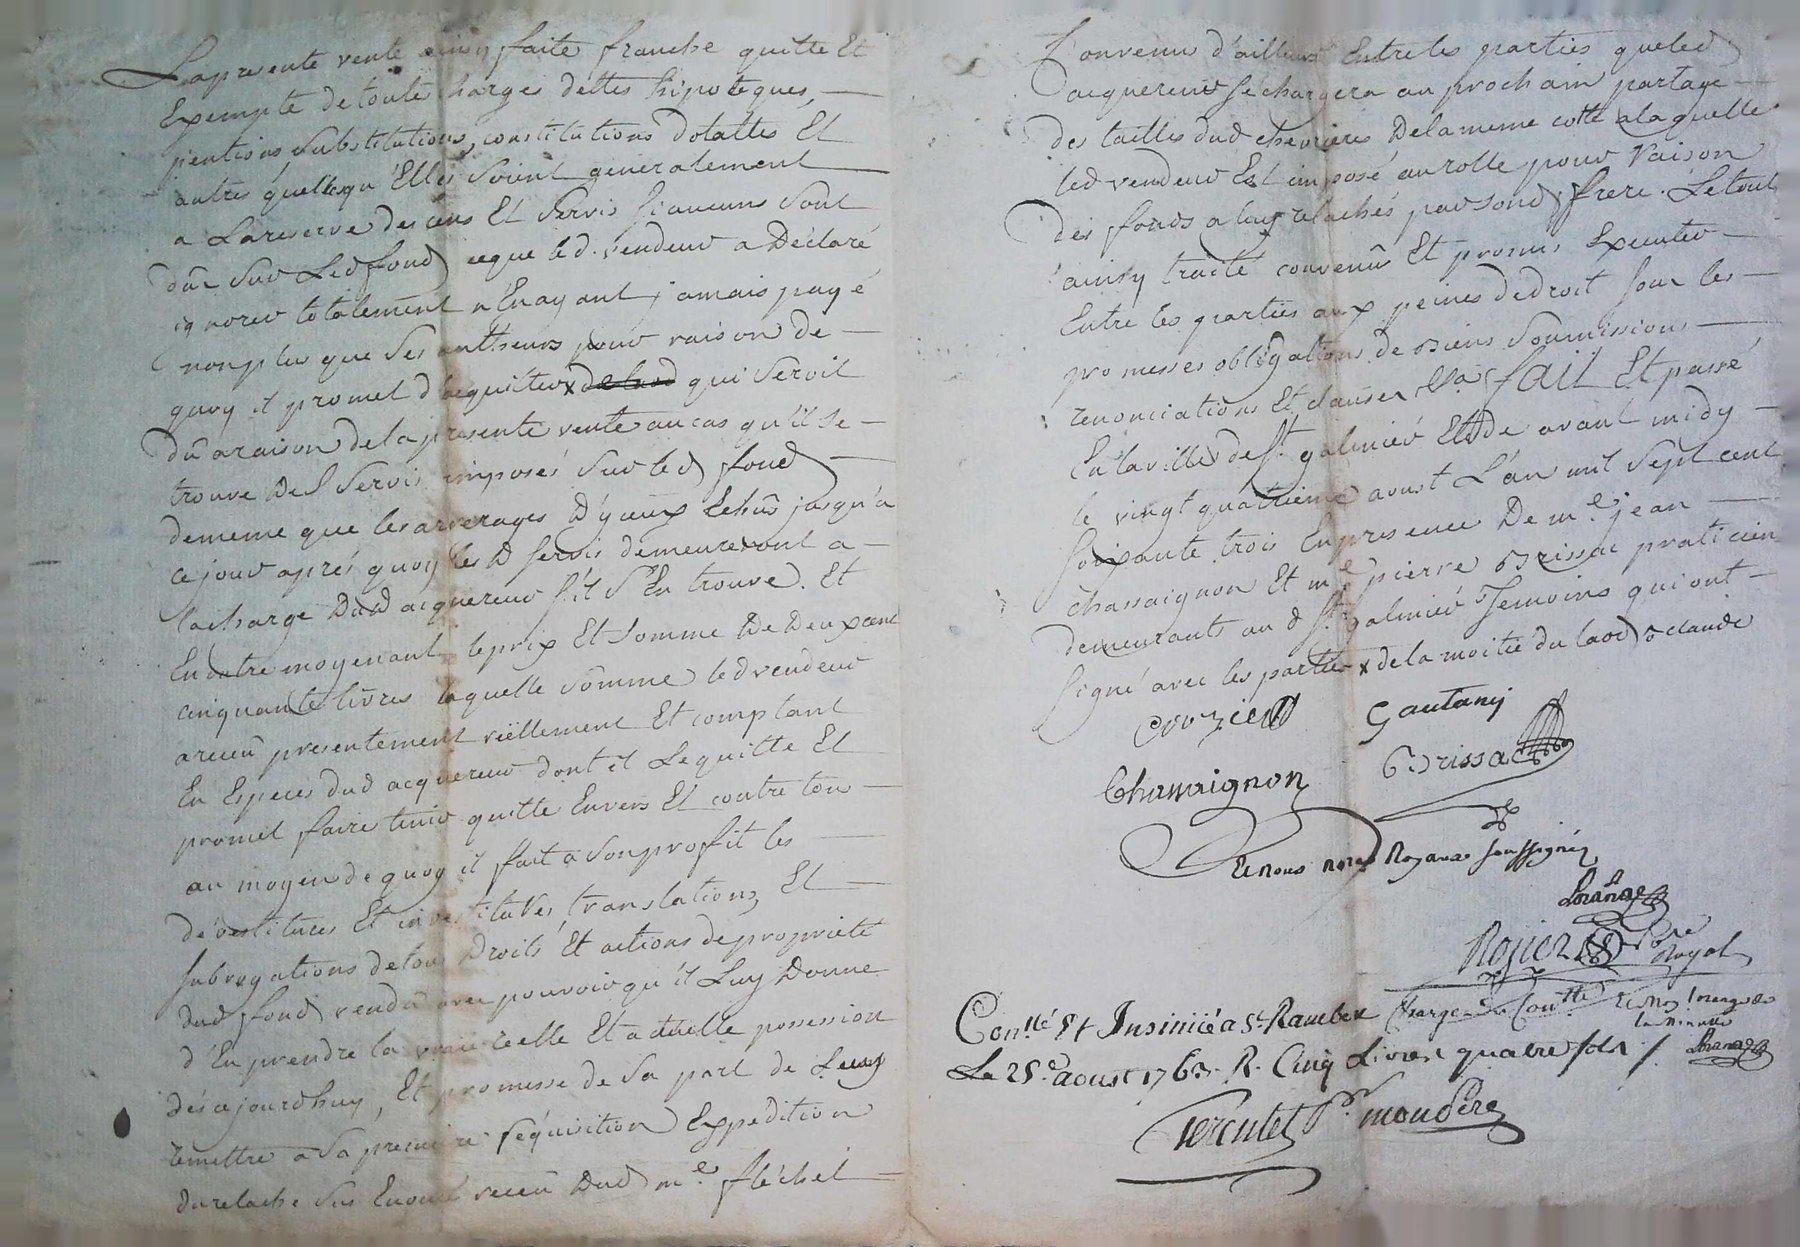 La presente vente ainsy faite franche quitte Et
Exempte de toute charges déttes hipotéques,
pentions substitutions, constitutions dotalles Et
autres quellesqu'Elles soient généralement
a La reserve des cens Et servis si aucuns sont
dûs sur Led fond ce que led. vendeur a Déclaré
ignorer totalement n'En ayant jamais payé
non plus que ses autheurs pour raison de
quoy il promet d'acquitter x de laod qui seroit
dû a raison de la presente vente au cas qu'il se
trouve Des servis imposés sur led fond
de meme que les arrerages D'yceux Echûs jusqu'a
ce jour aprés quoy les D servis demeureront a
la charge Dud acquereur s'il s'En trouve. Et
En outre moyenant le prix Et somme De Deux cent
cinquante livres laquelle somme led vendeur
a receu presentement réellement Et comptant
En Especes dud acquereur dont il Le quitte Et
promet faire tenir quitte Envers Et contre tous
au moyen de quoy il fait a son profit les
dévestitures Et investitures, translations Et
subrogations de tous Droits Et actions de propriété
dud fond vendu avec pouvoir qu'il Luy Donne
d'En prendre la vraie réelle Et actuelle possession
dés ce jourdhuy, Et promesse de sa part de Luy
remettre a sa premiere réquisition Expédition
du relache sus Enoncé receu Dud me. fléchet
Convenu d'ailleurs Entre les parties que led
acquereur se chargera au prochain partage
des tailles dud chevrieres De la meme cotte a laquelle
led vendeur Est imposé au rolle pour raison
des fonds a luy relachés par sond frere. Le tout
ainsy traité convenû Et promis Executer
Entre les parties aux peines de droit sous les
promesses obligations de biens soumissions
renonciations Et clauses fait Et passé
En la ville de St. galmier Etude avant midy
le vingt quatrieme aoust L'an mil sept cent
soixante trois En presence De me. jean
chassaignon Et me pierre Brissac praticien
demeurants aud St. galmier Temoins qui ont
signé avec les parties x de la moitié du laod
crozier Gautany
Chassaignon Brissac
Et nous notes Royaux soussignés
Rozier
Royal
Conllé Et Insinué a St. Rambert
Le 25e. aoust 1763. R. Cinq Livres quatre sols